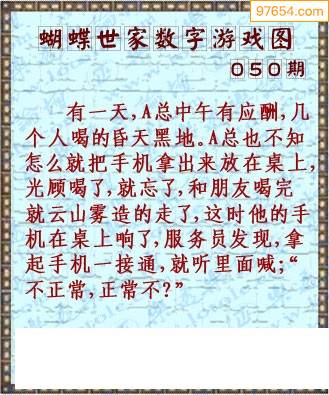 97654.com
蝴蝶世家数字游戏图
050期
有一天,A总中午有应酬,几
个人喝的昏天黑地。A总也不知
怎么就把手机拿出来放在桌上,
光顾喝了,就忘了,和朋友喝完
就云山雾造的走了,这时他的手
机在桌上响了,服务员发现,拿
起手机一接通,就听里面喊;“
不正常,正常不?”